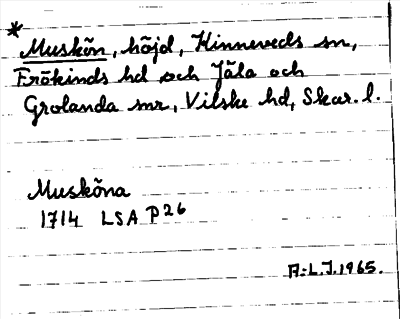 * Muskön, höjd, Kinneveds sn,
Frökinds hd och Jäla och
Grolanda snr, Vilske hd, Skar. l.
Musköna
1714 LSA P26
A.L.J. 1965.